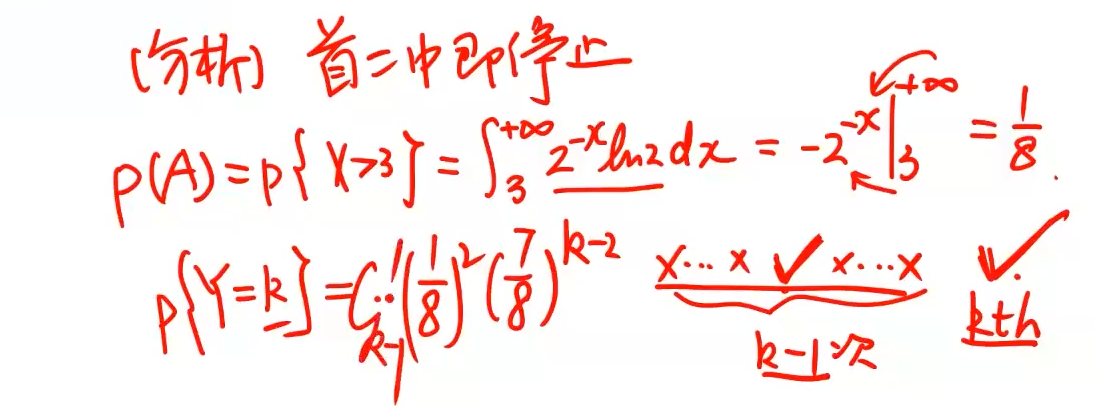 (分析) 首二中即停止
P(A)=P{X>3}=∫₃^{+∞} 2^{-x}ln2dx = -2^{-x}|₃^{+∞} = 1/8.
P{Y=k}=C_{k-1}^1(1/8)^2(7/8)^{k-2} x…x ✓ x…x ✓
k-1次 kth